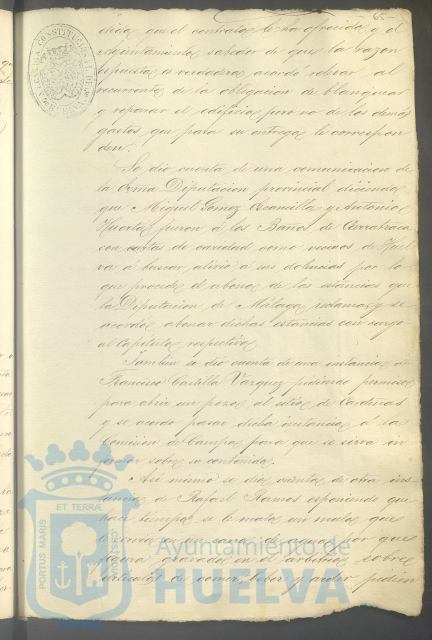 65
dida que el contrato le ha ofrecido y el
Ayuntamiento sabedor de que la razon
espuesta es verdadera acordó relevar al
recurrente de la obligacion de blanquear
y reparar el edificio pero no de los demás
gastos que para su entrega le correspon
den.
Se dió cuenta de una comunicacion de
la Exma Diputacion provincial diciendo
que Miguel Gomez Escancilla y Antonio
Huerta fueron á los Baños de Carratraca
con cartas de caridad como vecinos de Huel
va á buscar alivio á sus dolencias por lo
que procede el abono de las estancias que
la Diputacion de Málaga reclama; y se
acordó abonar dichas estancias con cargo
al Capitulo respectivo.
Tambien se dió cuenta de una instancia de
Francisco Castilla Vazquez pidiendo permiso
para abrir un pozo al sitio de Cardeñas
y se acordó pasar dicha instancia á la
Comision de Campo para que se sirva in
formar sobre su contenido.
Asi mismo se dió cuenta de otra ins
tancia de Rafael Ramos esponiendo que
hace tiempo se le mató un mulo que
de agua por que
gravado en el arbitrio sobre
articulos de comer, beber y arder pidien
PORTUS MARIS ET TERRÆ CUSTODIA
Ayuntamiento de
HUELVA